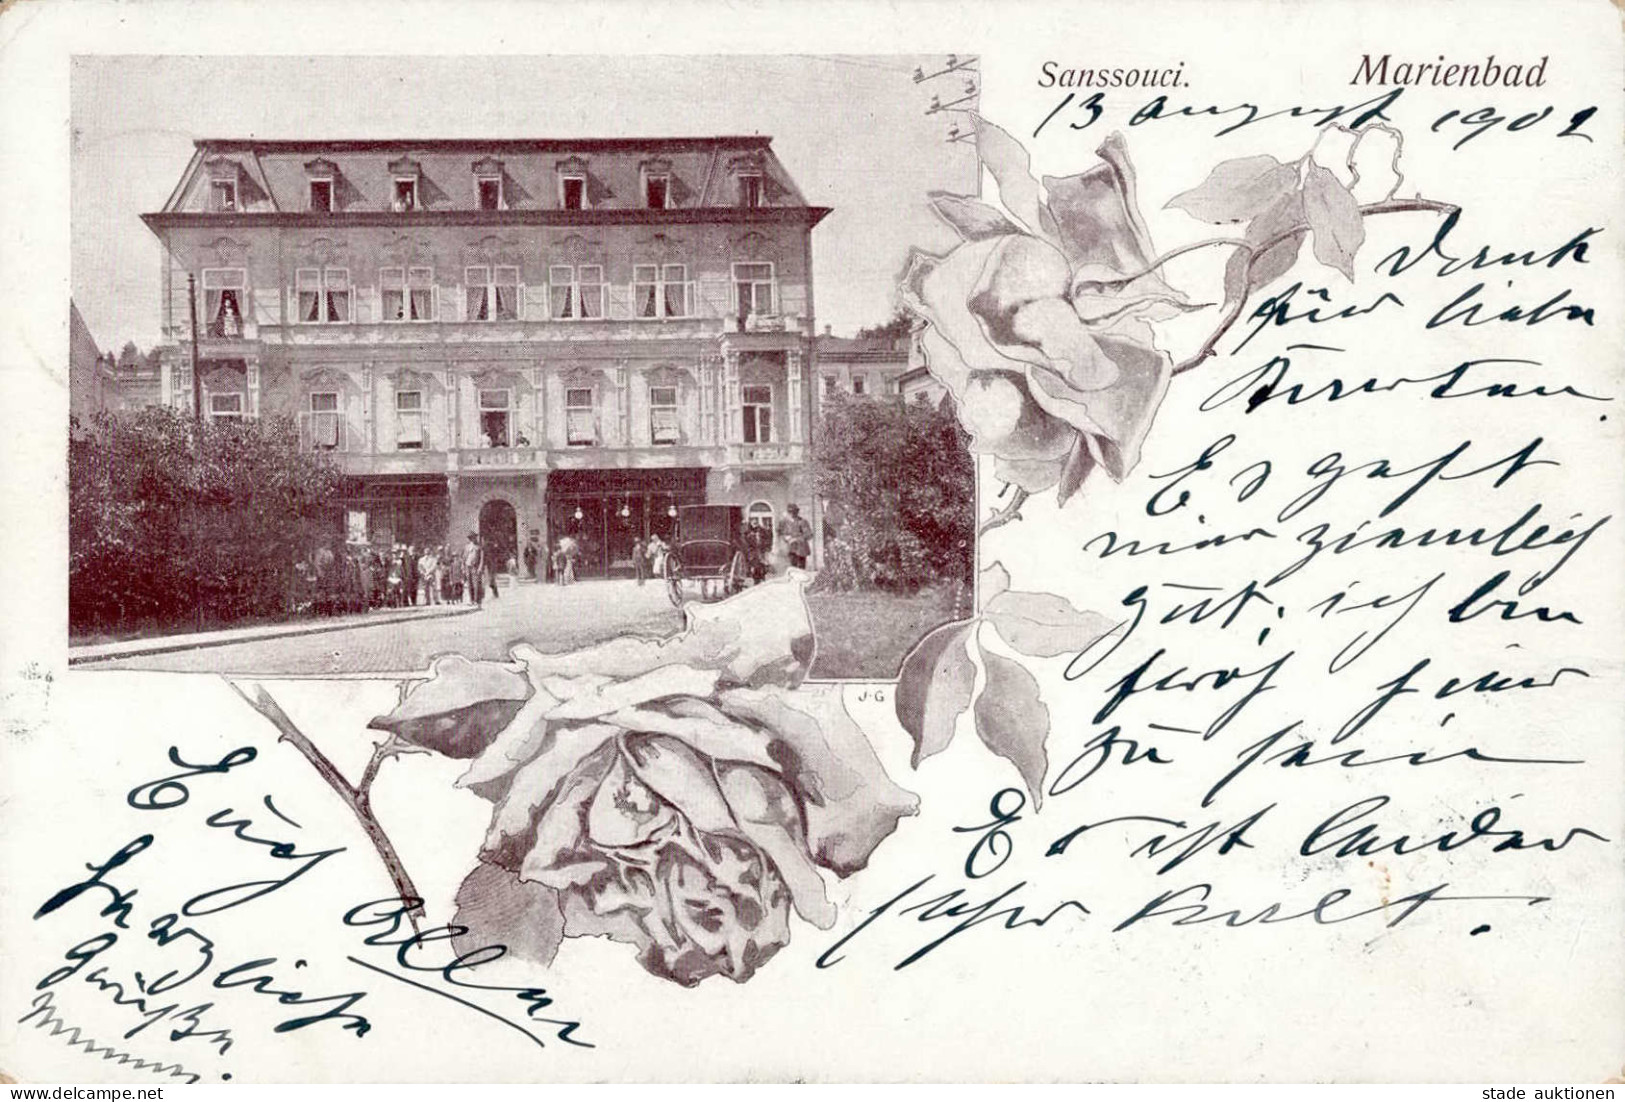 Sanssouci. Marienbad
13 August 1902
Dank
für liebe
Karten.
Es geht
mir ziemlich
gut; ich bin
froh hier
zu sein
Es ist leider
sehr kalt.
Euch Allen
herzliche
Grüße
J.G
stade auktionen